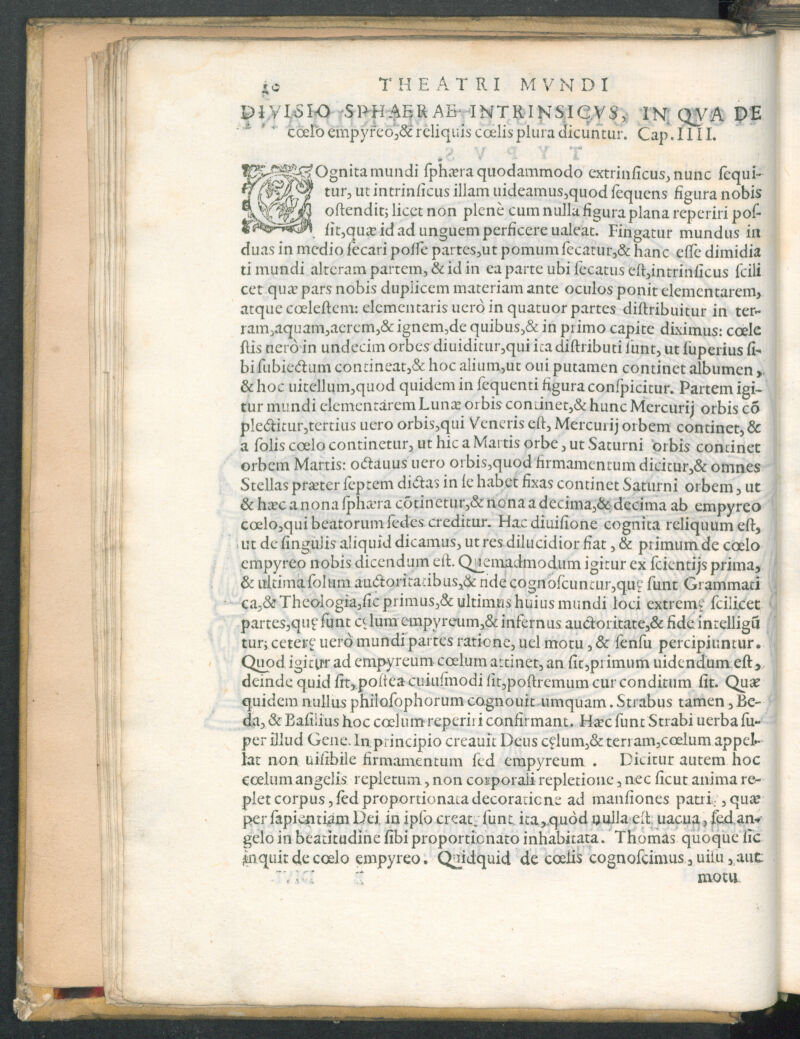 THEATRI MVNDI
DIVISIO SPHAERAE INTRINSICVS, IN QVA DE
cœlo empyreo,& reliquis cœlis plura dicuntur. Cap. IIII.
COgnita mundi ſphæra quodammodo extrinſicus, nunc ſequi-
tur, ut intrinſicus illam uideamus,quod ſequens figura nobis
oſtendit; licet non plenè cum nulla figura plana reperiri poſ-
ſit,quæ id ad unguem perficere ualeat. Fingatur mundus in
duas in medio ſecari poſſe partes,ut pomum ſecatur,& hanc eſſe dimidia
ti mundi alteram partem, & id in ea parte ubi ſecatus eſt,intrinſicus ſcili
cet quæ pars nobis duplicem materiam ante oculos ponit elementarem,
atque cœleſtem: elementaris uerò in quatuor partes diſtribuitur in ter-
ram,aquam,aerem,& ignem,de quibus,& in primo capite diximus: cœle
ſtis uerò in undecim orbes diuiditur,qui ita diſtributi ſunt, ut ſuperius ſi-
bi ſubiectum contineat,& hoc alium,ut oui putamen continet albumen,
& hoc uitellum,quod quidem in ſequenti figura conſpicitur. Partem igi-
tur mundi elementarem Lunæ orbis continet,& hunc Mercurij orbis cō
plectitur,tertius uero orbis,qui Veneris eſt, Mercurij orbem continet, &
a ſolis cœlo continetur, ut hic a Martis orbe, ut Saturni orbis continet
orbem Martis: octauus uero orbis,quod firmamentum dicitur,& omnes
Stellas præter ſeptem dictas in ſe habet fixas continet Saturni orbem, ut
& hæc a nona ſphæra cōtinetur,& nona a decima,& decima ab empyreo
cœlo,qui beatorum ſedes creditur. Hac diuiſione cognita reliquum eſt,
ut de ſingulis aliquid dicamus, ut res dilucidior fiat, & primum de cœlo
empyreo nobis dicendum eſt. Quemadmodum igitur ex ſcientijs prima,
& ultima ſolum auctoritatibus,& fide cognoſcuntur,quę ſunt Grammati
ca,& Theologia,ſic primus,& ultimus huius mundi loci extremę ſcilicet
partes,quę ſunt cęlum empyreum,& infernus auctoritate,& fide intelligū
tur; ceterę uerò mundi partes ratione, uel motu, & ſenſu percipiuntur.
Quod igitur ad empyreum cœlum attinet, an ſit,primum uidendum eſt,
deinde quid ſit, poſtea cuiuſmodi ſit,poſtremum cur conditum ſit. Quæ
quidem nullus philoſophorum cognouit umquam. Strabus tamen, Be-
da, & Baſilius hoc cœlum reperiri confirmant. Hæc ſunt Strabi uerba ſu-
per illud Gene. In principio creauit Deus cęlum,& terram,cœlum appel-
lat non uiſibile firmamentum ſed empyreum . Dicitur autem hoc
cœlum angelis repletum, non corporali repletione, nec ſicut anima re-
plet corpus, ſed proportionata decoratione ad manſiones , quæ
per ſapientiam Dei in ipſo ſunt ita, quòd nulla eſt uacua, ſed an-
gelo in beatitudine ſibi proportionato inhabitata. Thomas quoque ſic
inquit de cœlo empyreo. Quidquid de cœlis cognoſcimus, uiſu, aut
motu